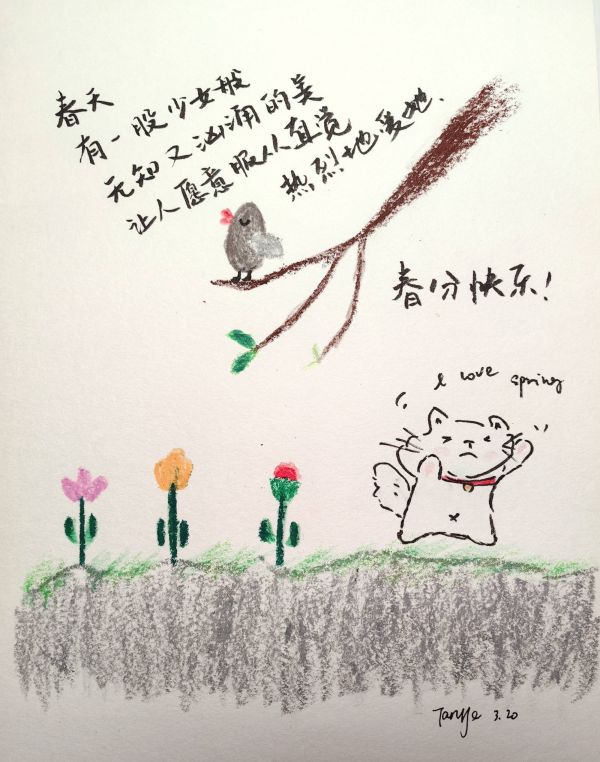 春天
有一股少女般
无知又汹涌的美
让人愿意服从直觉
热烈地爱地.
春分快乐!
I love spring
Tanye 3.20